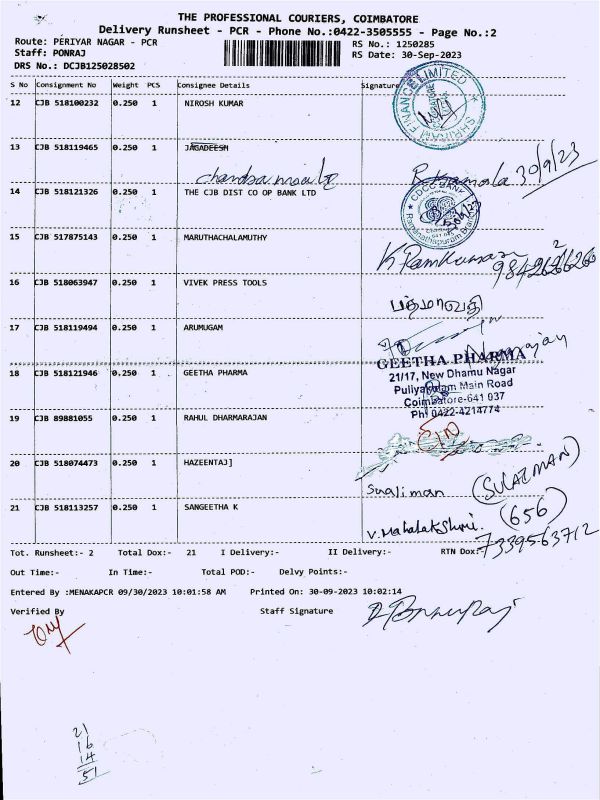 THE PROFESSIONAL COURIERS, COIMBATORE
Delivery Runsheet - PCR - Phone No.:0422-3505555 - Page No.:2
Route: PERIYAR NAGAR - PCR RS No.: 1250285
Staff: PONRAJ RS Date: 30-Sep-2023
DRS No.: DCJB125028502
S No Consignment No Weight PCS Consignee Details Signature
12 CJB 518100232 0.250 1 NIROSH KUMAR
FINANCE LIMITED
SHRIRAM
13 CJB 518119465 0.250 1 JAGADEESH
30/9/23
14 CJB 518121326 0.250 1 THE CJB DIST CO OP BANK LTD
CDCC BANK
Ramanathapuram Branch
15 CJB 517875143 0.250 1 MARUTHACHALAMUTHY
K Ramkumar
16 CJB 518063947 0.250 1 VIVEK PRESS TOOLS
பத்மாவதி
17 CJB 518119494 0.250 1 ARUMUGAM
18 CJB 518121946 0.250 1 GEETHA PHARMA
GEETHA PHARMA
21/17, New Dhamu Nagar
Puliyakulam Main Road
Coimbatore-641 037
Ph: 0422-4214774
19 CJB 89881055 0.250 1 RAHUL DHARMARAJAN
20 CJB 518074473 0.250 1 HAZEENTAJ]
Sualiman (SULAIMAN)
21 CJB 518113257 0.250 1 SANGEETHA K
V. Mahalakshmi. (656)
7339563712
Tot. Runsheet:- 2 Total Dox:- 21 I Delivery:- II Delivery:- RTN Dox:-
Out Time:- In Time:- Total POD:- Delvy Points:-
Entered By :MENAKAPCR 09/30/2023 10:01:58 AM Printed On: 30-09-2023 10:02:14
Verified By Staff Signature
21
16
14
51